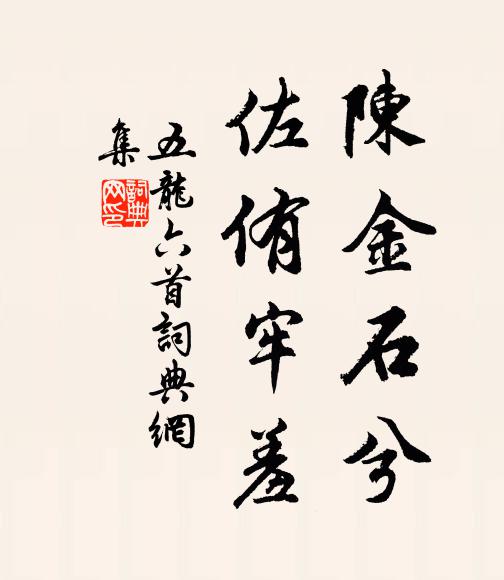 陳金石兮
佐侑牢羞
五龍六首詞典網
集
詞典
网印